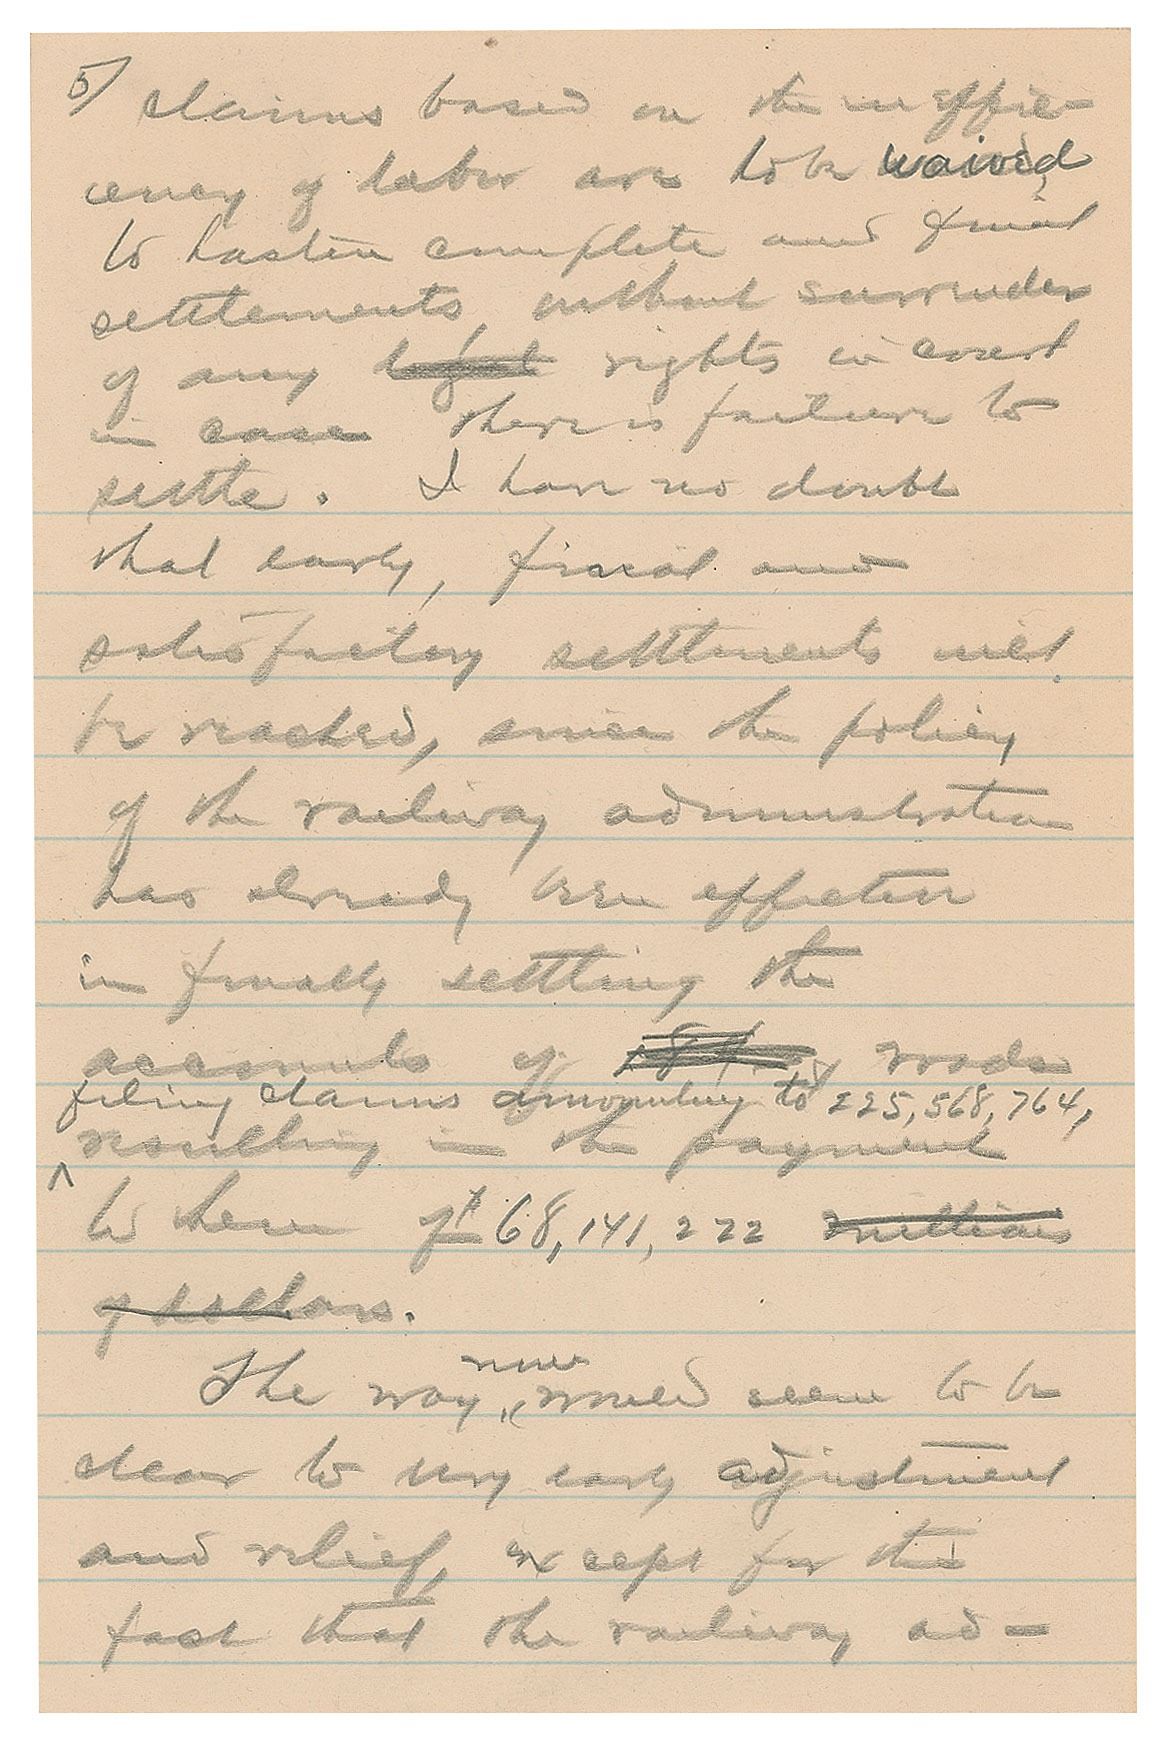 5/
claims based on the ineffici-
ency of labor are to be waived,
to hasten complete and final
settlements, without surrender
of any legal rights in court
in case there is failure to
settle. I have no doubt
that early, final and
satisfactory settlements will
be reached, since the policy
of the railway administration
has already been effective
in finally settling the
accounts of roads
filing claims amounting to 225,568,764,
resulting in the payment
to them of $68,141,222 millions
of dollars.
now
The way would seem to be
clear to very early adjustment
and relief, except for the
fact that the railway ad-